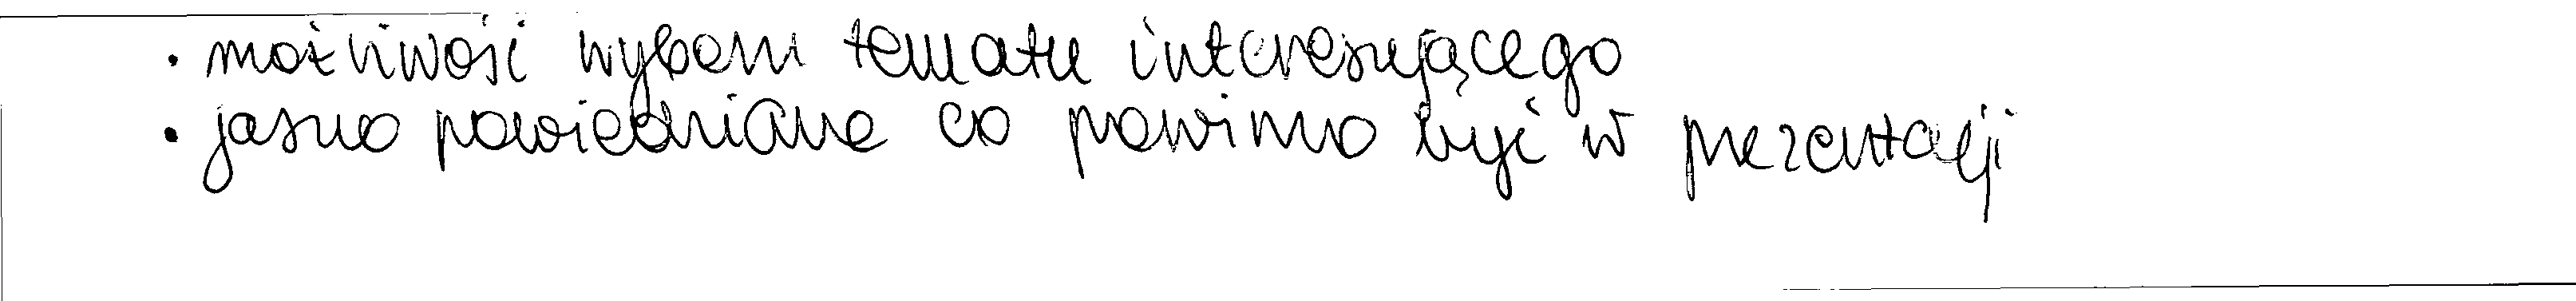 • możliwość wyboru tematu interesującego
• jasno powiedziane co powinno być w prezentacji